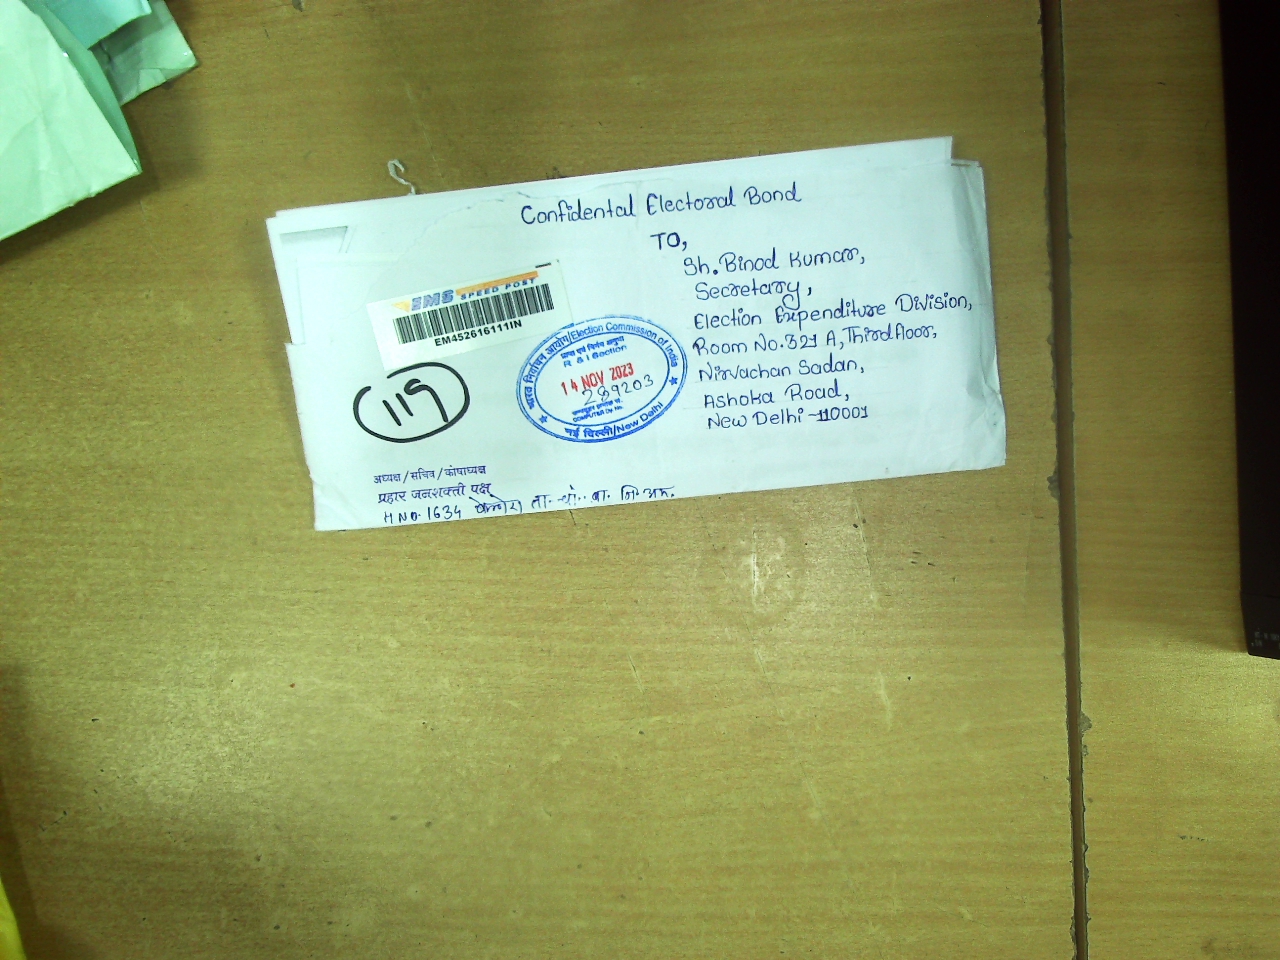 Confidental Electoral Bond
TO,
Sh. Binod Kumar,
Secretary,
Election Expenditure Division,
Room No. 321 A, Third floor,
Nirvachan Sadan,
Ashoka Road,
New Delhi - 110001
EMS SPEED POST
EM452616111IN
भारत निर्वाचन आयोग/Election Commission of India
R & I Section
14 NOV 2023
289203
COMPUTER Dy. No.
नई दिल्ली/New Delhi
119
अध्यक्ष/सचिव/कोषाध्यक्ष
प्रहार जनशक्ती पक्ष
H NO. 1634